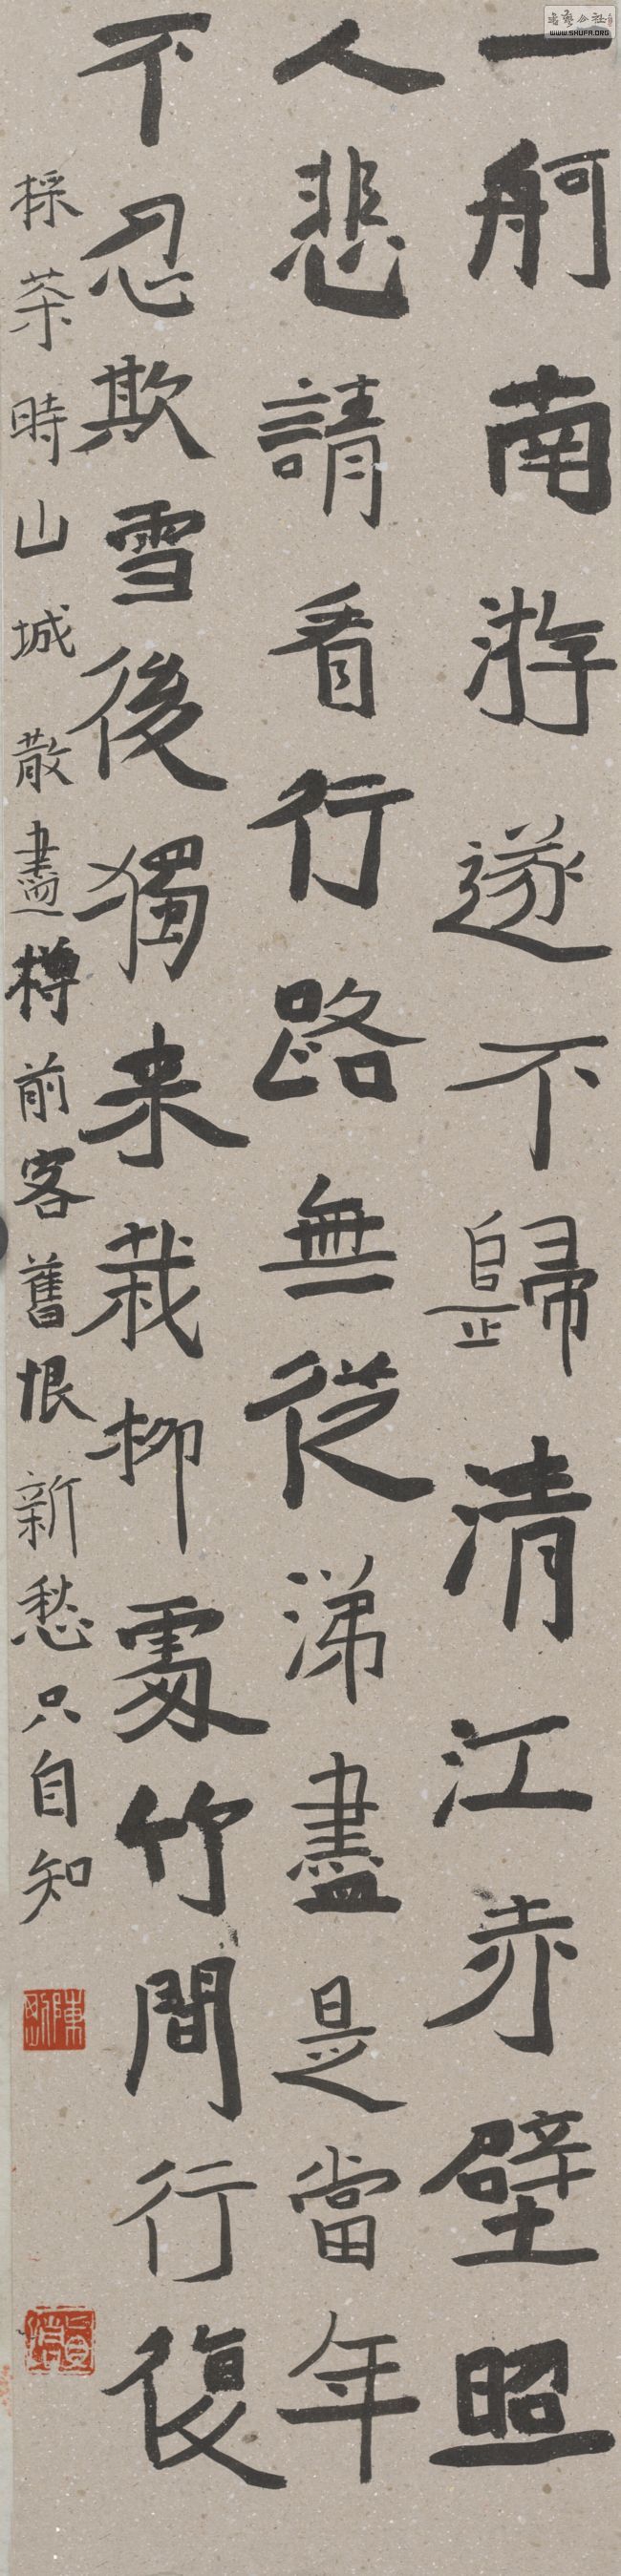 一舸南游遂不歸清江赤壁照
人悲請看行路無從涕盡是當年
不忍欺雪後獨来栽柳處竹間行復
採茶時山城散盡樽前客舊恨新愁只自知
WWW.SHUFA.ORG